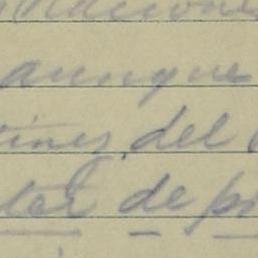 aunque
tines del
ter de pi